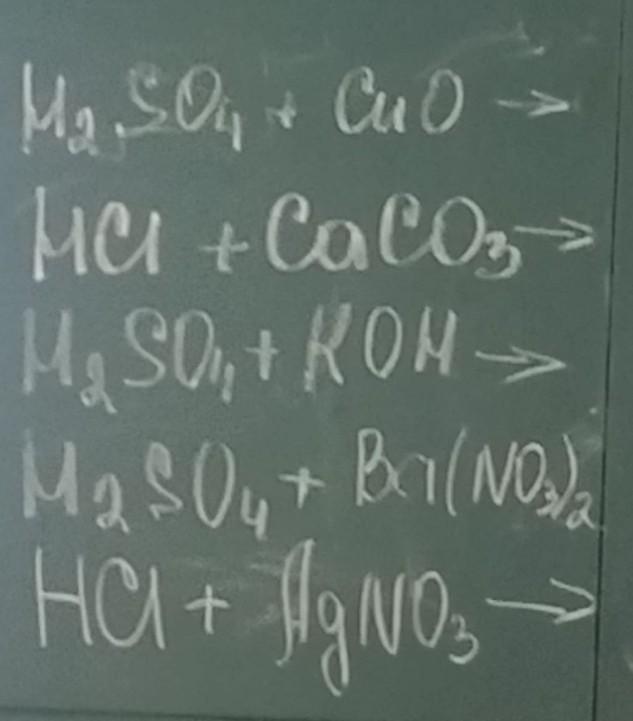 H₂SO₄ + CuO →
HCl + CaCO₃ →
H₂SO₄ + KOH →
H₂SO₄ + Ba(NO₃)₂
HCl + AgNO₃ →